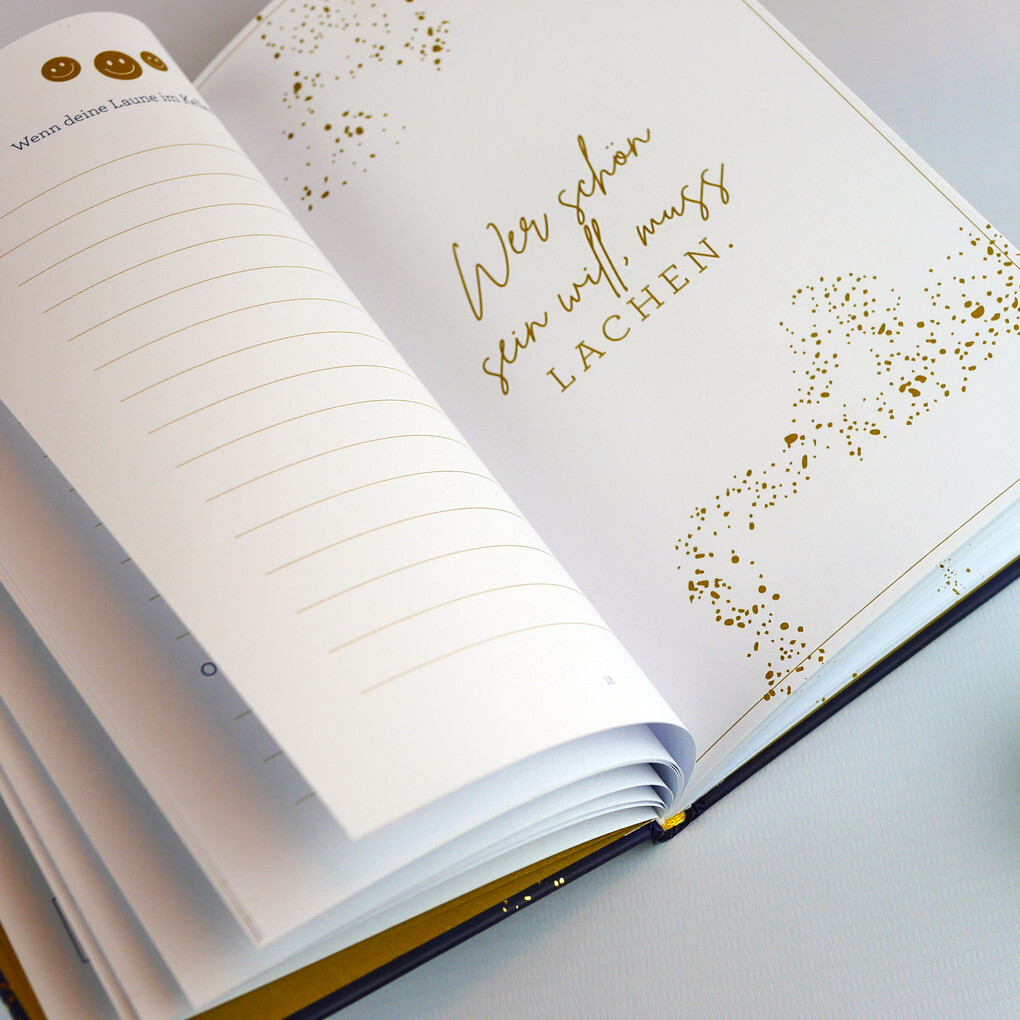 Wenn deine Laune im
18
Wer schön
sein will, muss
LACHEN.